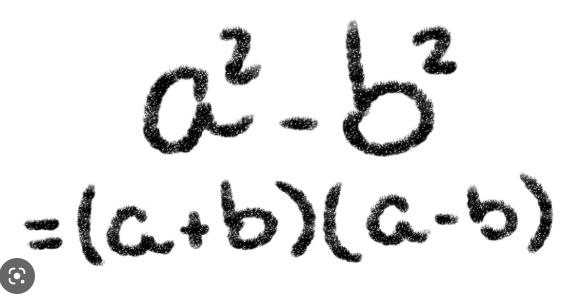 a² - b²
=(a+b)(a-b)